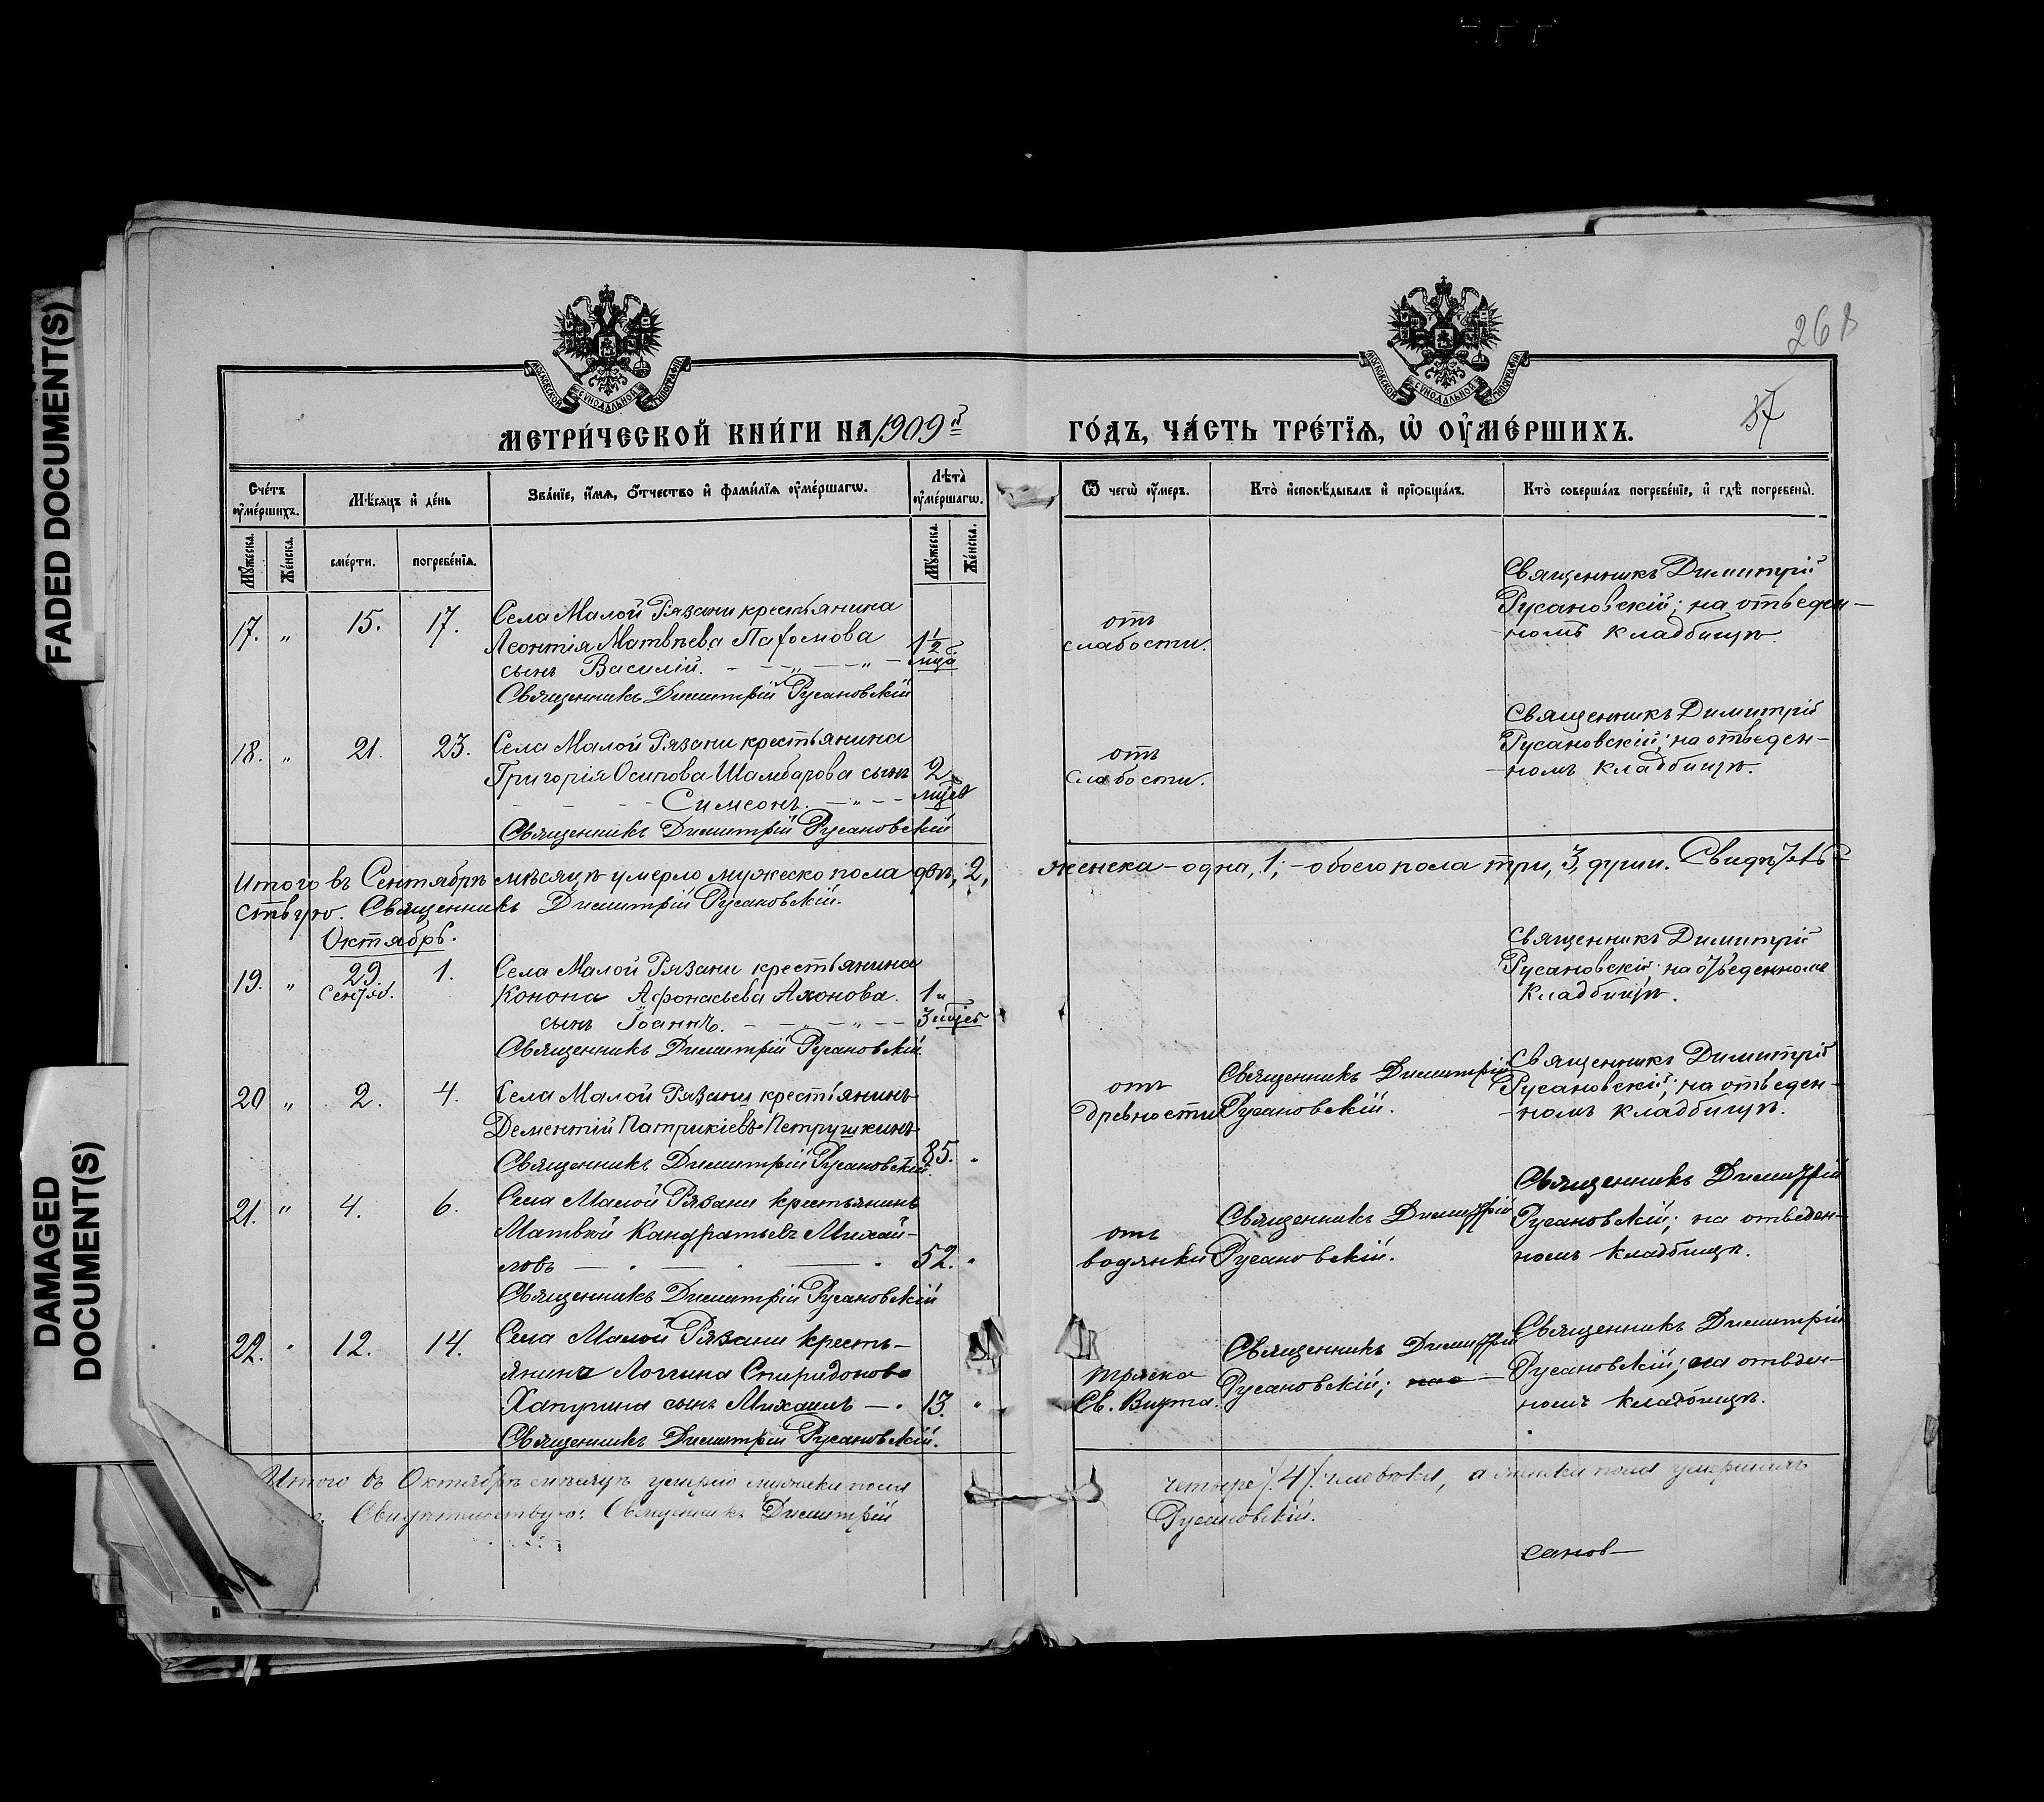 FADED DOCUMENT(S)
DAMAGED
DOCUMENT(S)
МОСКОВСКОЙ СѴНОДАЛЬНОЙ ТИПОГРАФІИ
МОСКОВСКОЙ СѴНОДАЛЬНОЙ ТИПОГРАФІИ
268
37
МЕТРИ́ЧЕСКОЙ КНИ́ГИ НА 1909й
ГО́ДЪ, ЧА́СТЬ ТРЕ́ТЇѦ, Ѡ҆ ОУ҆МЕ́РШИХЪ.
Сче́тъ
оу҆ме́ршихъ.
Мѣ́сяцъ и҆ де́нь
Зва́нїе, и҆́мѧ, ѻ҆́тчество и҆ фами́лїѧ оу҆ме́ршагѡ.
Лѣта̀
оу҆ме́ршагѡ.
Ѿ чегѡ̀ оу҆́меръ.
Кто̀ и҆сповѣ́дывалъ и҆ прїѻбща́лъ.
Кто̀ соверша́лъ погребе́нїе, и҆ гдѣ̀ погребены̀.
Мꙋ́жеска.
Же́нска.
сме́рти.
погребе́нїѧ.
Мꙋ́жеска.
Же́нска.
17. „ 15. 17.
Села Малой Рязани крестьянина
Леонтія Матвѣева Пафомова
сынъ Василій. – – „ – – „ –
1½ мѣс.
Священникъ Димитрій Русановскій
отъ
слабости.
Священникъ Димитрій
Русановскій; на отведен–
–номъ кладбищѣ.
18. „ 21. 23.
Села Малой Рязани крестьянина
Григорія Осипова Шамбарова сынъ
– – – Симеонъ. – „ – –
2
Священникъ Димитрій Русановскій
отъ
слабости.
Священникъ Димитрій
Русановскій; на отведен–
–номъ кладбищѣ.
Итого въ Сентябрѣ мѣсяцѣ умерло мужеско пола двѣ, 2,
женска – одна, 1; – обоего пола три, 3, души. Свидѣтель–
ствую. Священникъ Димитрій Русановскій.
Октябрь.
19. „ 29 Сентяб. 1.
Села Малой Рязани крестьянина
Конона Афонасьева Ахонова.
сынъ Іоаннъ. – – „ – „ – –
1 и
3
Священникъ Димитрій Русановскій
Священникъ Димитрій
Русановскій; на отведенномъ
кладбищѣ.
20 „ 2. 4.
Села Малой Рязани крестьянинъ
Дементій Патрикіевъ Петрушкинъ
Священникъ Димитрій Русановскій.
85. „
отъ
древности
Священникъ Димитрій
Русановскій.
Священникъ Димитрій
Русановскій; на отведен–
–номъ кладбищѣ.
21. „ 4. 6.
Села Малой Рязани крестьянинъ
Матвѣй Кандратьевъ Михай–
ловъ
52. „
Священникъ Димитрій Русановскій
отъ
водянки
Священникъ Димитрій
Русановскій.
Священникъ Димитрій
Русановскій; на отведен–
номъ кладбищѣ.
22. „ 12. 14.
Села Малой Рязани кресть–
янина Логгина Спиридонова
Хапугина сынъ Михаилъ – „ 13. „
Священникъ Димитрій Русановскій.
тряска
Св. Витта.
Священникъ Димитрій
Русановскій;
Священникъ Димитрій
Русановскій; на отведен–
номъ кладбищѣ.
Итого въ Октябрѣ мѣсяцѣ умерло мужска пола
четыре /4/ человека, а женска пола умершихъ
Свидѣтельствую: Священникъ Димитрій
Русановскій.
санов–